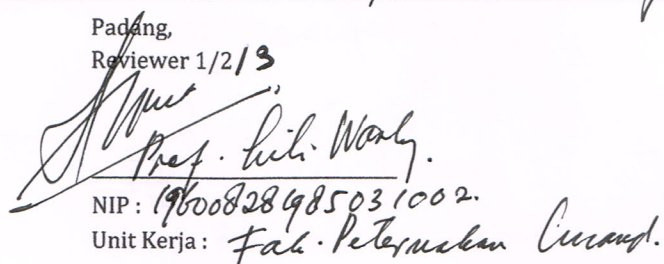 Padang,
Reviewer 1/2/3
Prof. Lili Warly.
NIP : 196008281985031002.
Unit Kerja : Fak. Peternakan Unand.